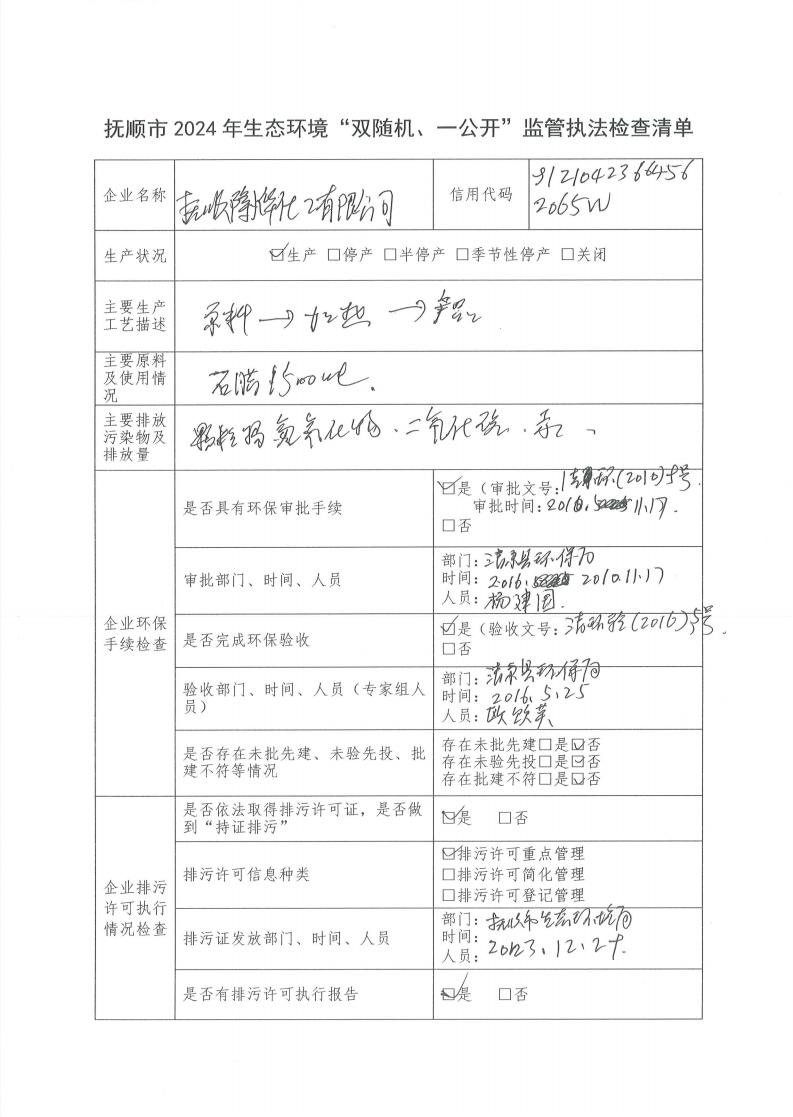 抚顺市 2024 年生态环境“双随机、一公开”监管执法检查清单
企业名称 抚顺隆烨化工有限公司 信用代码 91210423664562065W
生产状况 ☑生产 □停产 □半停产 □季节性停产 □关闭
主要生产
工艺描述 原料→加热→
主要原料
及使用情
况 石腊 500吨.
主要排放
污染物及
排放量 颗粒物 氮氧化物、二氧化硫、
企业环保
手续检查
是否具有环保审批手续
☑是(审批文号: 环(2010)5号.
审批时间:2010. 11.17.
□否
审批部门、时间、人员
部门:清原县环保局
时间:2016. 2010.11.17
人员:杨建国.
是否完成环保验收
☑是(验收文号:清环验(2016)5号.
□否
验收部门、时间、人员(专家组人
员)
部门:清原县环保局
时间:2016.5.25
人员:
是否存在未批先建、未验先投、批
建不符等情况
存在未批先建□是☑否
存在未验先投□是☑否
存在批建不符□是☑否
企业排污
许可执行
情况检查
是否依法取得排污许可证,是否做
到“持证排污”
☑是 □否
排污许可信息种类
☑排污许可重点管理
□排污许可简化管理
□排污许可登记管理
排污证发放部门、时间、人员
部门:抚顺市生态环境局
时间:
人员:2023.12.27.
是否有排污许可执行报告
☑是 □否